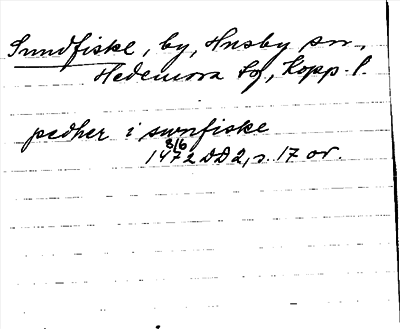 Sundfiske, by, Husby sn.,
Hedemora tg, Kopp. l.
pedher i swnfiske
8/6
1472 DD2, s. 17 or.